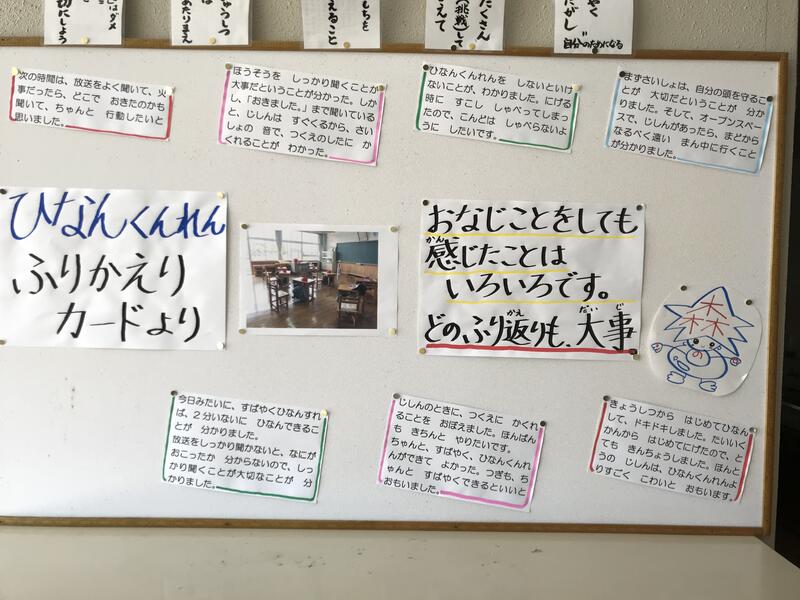 はダメ
切にしよう
ゅうしつ
は
あたりまえ
もちを
えること
たくさん
（挑戦）して
えて
やく
たがし
自分のためになる
次の時間は、放送をよく聞いて、火
事だったら、どこで おきたのかも
聞いて、ちゃんと 行動したいと
思いました。
ほうそうを しっかり聞くことが
大事だということが分かった。しか
し、「おきました。」まで聞いている
と、じしんは すぐくるから、さい
しょの 音で、つくえのしたに か
くれることが わかった。
ひなんくんれんを しないといけ
ないことが、わかりました。にげる
時に すこし しゃべってしまっ
たので、こんどは しゃべらないよ
うに したいです。
まずさいしょは、自分の頭を守るこ
とが 大切だということが 分か
りました。そして、オープンスペー
スで、じしんがあったら、まどから
なるべく遠い まん中に行くこと
が分かりました。
ひなんくんれん
ふりかえり
カードより
おなじことをしても
感じたことは
かん
いろいろです。
どの、ふり返りも、大事
かえ だいじ
森
今日みたいに、すばやくひなんすれ
ば、２分いないに ひなんできるこ
とが 分かりました。
放送をしっかり聞かないと、なにが
おこったか 分からないので、しっ
かり聞くことが大切なことが 分
かりました。
じしんのときに、つくえに かくれ
ることを おぼえました。ほんばん
も きちんと やりたいです。
ちゃんと、すばやく、ひなんくんれ
んができて よかった。つぎも、ち
ゃんと すばやくできるといいと
おもいました。
きょうしつから はじめてひなん
して、ドキドキしました。たいいく
かんから はじめてにげたので、と
ても きんちょうしました。ほんと
うの じしんは、ひなんくんれんよ
りすごく こわいと おもいます。